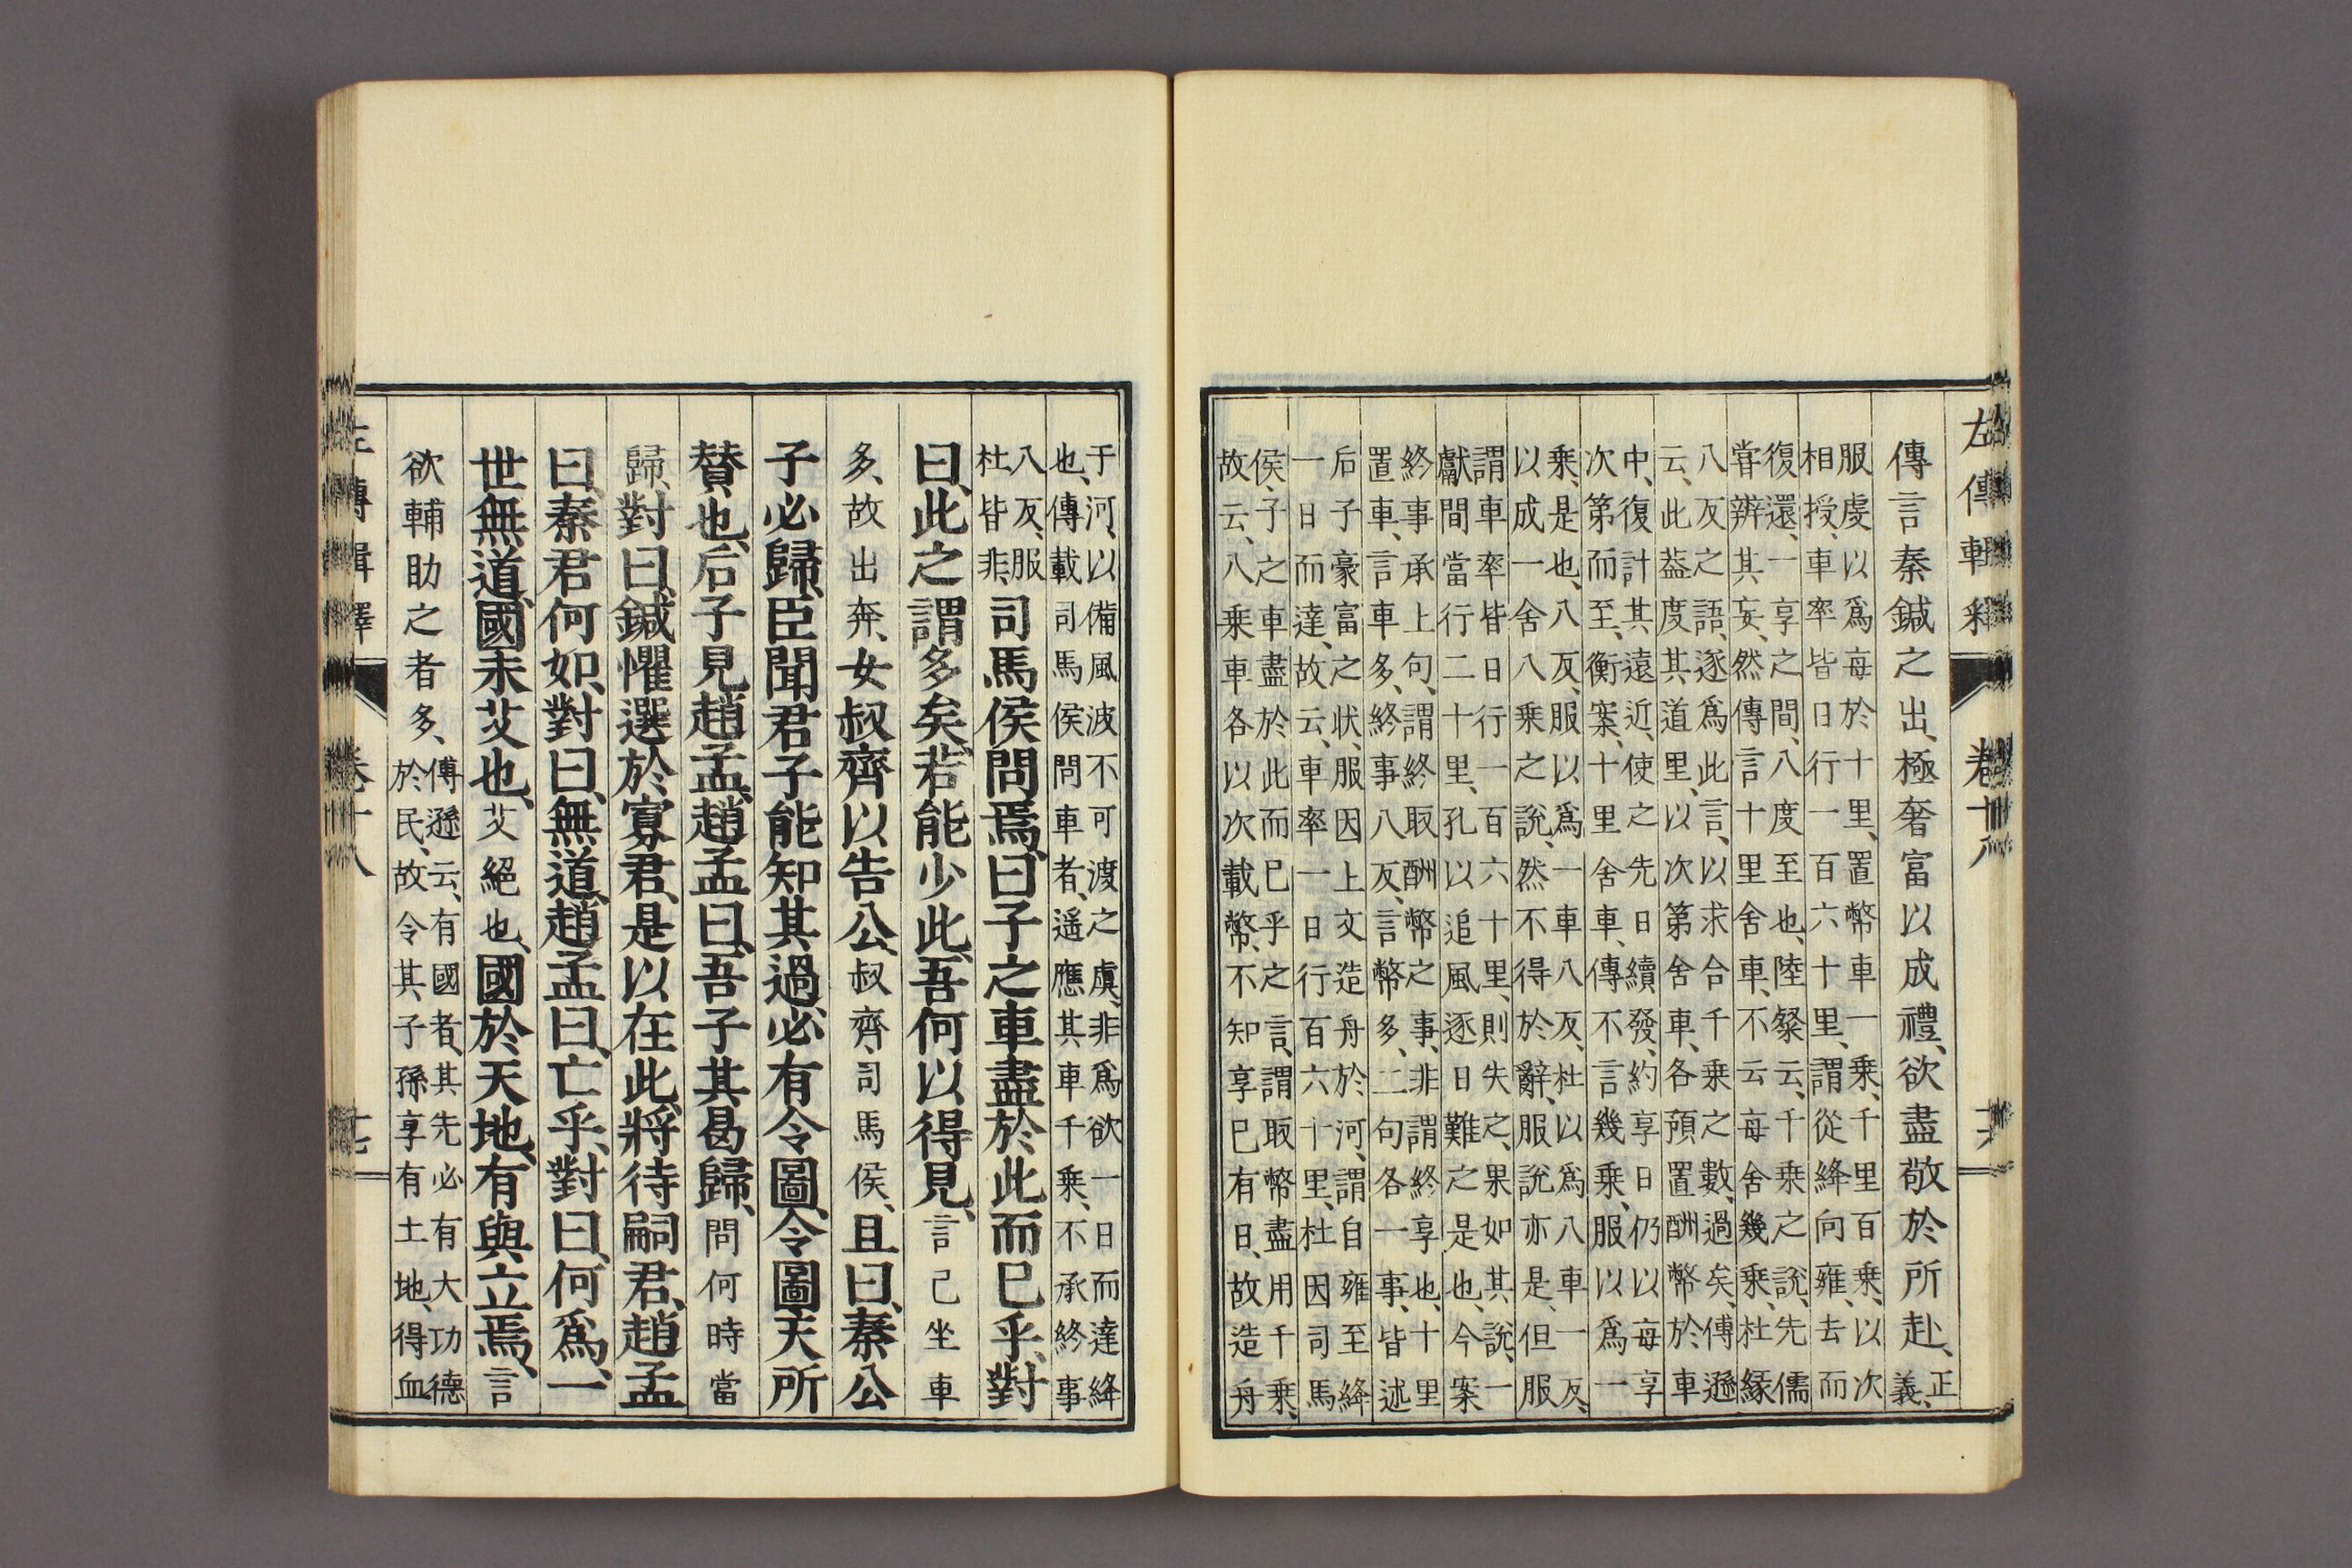 左傳輯釋 卷十八 十六
傳言秦鍼之出、極奢富以成禮、欲盡敬於所赴、正義、
服虔以爲每於十里、置幣車一乘、千里百乘、以次
相授、車率皆日行一百六十里、謂從絳向雍、去而
復還、一享之間、八度至也、陸粲云、千乘之說、先儒
嘗辨其妄、然傳言十里舍車、不云每舍幾乘、杜緣
八反之語、逐爲此言、以求合千乘之數、過矣、傅遜
云、此葢度其道里、以次第舍車、各預置酬幣於車
中、復計其遠近、使之先日續發、約享日仍以每享
次第而至、衡案、十里舍車、傳不言幾乘、服以爲一
乘、是也、八反、服以爲一車八反、杜以爲八車一反、
以成一舍八乘之說、然不得於辭、服說亦是、但服
謂車率皆日行一百六十里、則失之、果如其說、一
獻間當行二十里、孔以追風逐日難之是也、今案
終事承上句、謂終取酬幣之事、非謂終享也、十里
置車、言車多、終事八反、言幣多、二句各一事、皆述
后子豪富之狀、服因上文造舟於河、謂自雍至絳
一日而達、故云、車率一日行百六十里、杜因司馬
侯子之車盡於此而已乎之言、謂取幣盡用千乘、
故云、八乘車各以次載幣、不知享已有日、故造舟
于河、以備風波不可渡之虞、非爲欲一日而達絳
也、傳載司馬侯問車者、遥應其車千乘、不承終事
八反、服
杜皆非、
司馬侯問焉、曰子之車盡於此而已乎、對
曰、此之謂多矣、若能少此、吾何以得見、言己坐車
多、故出奔、女叔齊以告公、叔齊、司馬侯、且曰、秦公
子必歸、臣聞君子能知其過、必有令圖、令圖天所
贊也、后子見趙孟、趙孟曰、吾子其曷歸、問何時當
歸、對曰、鍼懼選於寡君、是以在此、將待嗣君、趙孟
曰、秦君何如、對曰、無道、趙孟曰、亡乎、對曰、何爲、一
世無道、國未艾也、艾絕也、國於天地、有與立焉、言
欲輔助之者多、
傅遜云、有國者、其先必有大功德
於民、故令其子孫享有土地、得血
左傳輯釋 卷十八 十七